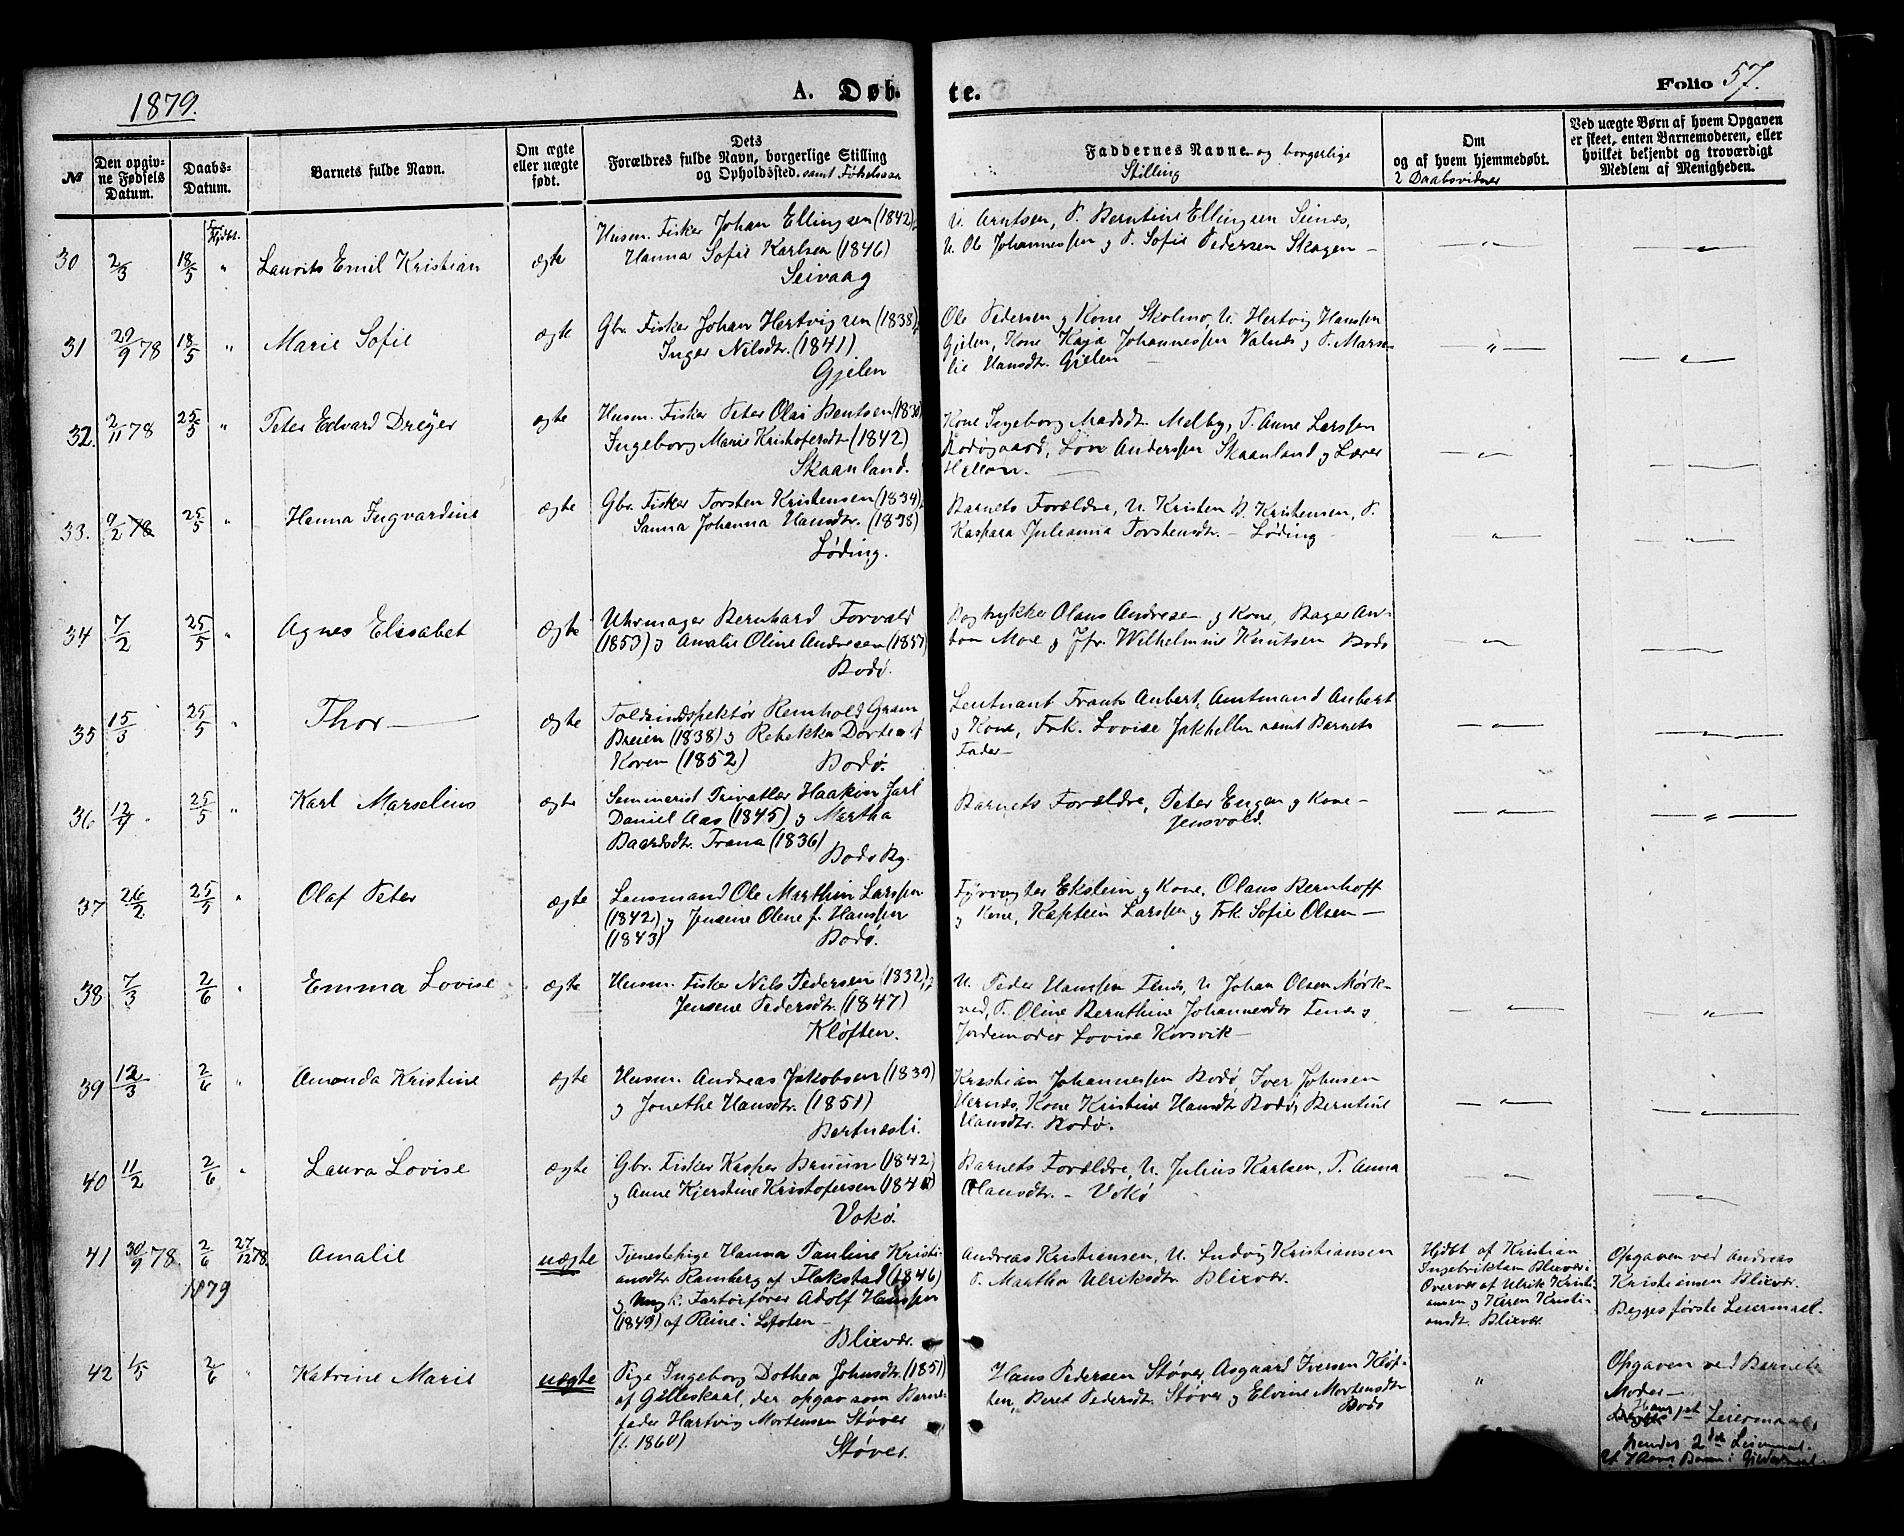 1879.
A. Døb-
te.
Folio 57.
№
Den opgiv-
ne Fødsels
Datum.
Daabs-
Datum.
Barnets fulde Navn.
Om ægte
eller uægte
født.
Dets
Forældres fulde Navn, borgerlige Stilling
og Opholdssted. samt Fødselsaar
Faddernes Navne og borgerlige
Stilling
Om
og af hvem hjemmedøbt.
2 Daabsvidner
Ved uægte Børn af hvem Opgaven
er skeet, enten Barnemoderen, eller
hvilket bekjendt og troværdigt
Medlem af Menigheden.
Hjdbt.
30 2/3 18/5 " Laurits Emil Kristian ægte
Husm. Fisker Johan Ellingsen (1842) &
Hanna Sofie Karlsen (1846)
Seivaag
U. Arntsen, P. Berntine Ellingsen Seines,
U. Ole Johannessen & P. Sofie Pedersen Skagen –
31 29/9 78 18/5 " Marie Sofie ægte
Gbr. Fisker Johan Hertvigsen (1838) &
Inger Nilsdtr. (1841)
Gjelen
Ole Pedersen & Kone Skolmo, U. Hertvig Hanssen
Gjelen, Kone Kaja Johannessen Valnes & P. Marse-
lie Hansdtr. Gjelen
32. 2/11 78 25/5 " Peter Edvard Dreyer ægte
Husm. Fisker Peter Olai Bentsen (1830)
Ingeborg Marie Kristofersdt. (1842)
Skaanland.
Kone Ingeborg Madsdt. Melby, P. Anne Larssen
Bodøgaard, Lars Anderssen Skaanland & Lærer
33. 9/2 78 25/5 " Hanna Ingvardine ægte
Gbr. Fisker Torsten Kristensen (1834) &
Sanna Johanna Hansdtr. (1838)
Løding.
Barnets Forældre, U. Kristen B. Kristensen, P.
Kaspara Julianna Torstensdtr. – Løding –
34 7/2 25/5 " Agnes Elisabet ægte
Uhrmager Bernhard Torvald
(1853) & Amalie Oline Andresen (1857)
Bodø.
Bogtrykker Olaus Andresen & Kone, Bager An-
ton Moe & Jfr. Wilhelmine Knutsen Bodø
35 15/3 25/5 " Thor ægte
Toldindspektør Reinhold Gram
Breien (1838) & Rebekka Dortea f
Koren (1852) Bodø.
Leutnant Frants Aubert, Amtmand Aubert
& Kone, Frk. Lovise Jakhelln samt Barnets
Fader –
36 12/9 25/5 " Karl Marselius ægte
Seminarist Privatlær Haakon Jarl
Daniel Aas (1845) & Martha
Baardsdtr. Trana (1836)
Bodø By.
Barnets Forældre, Peter Engen & Kone –
Jensvold.
37 26/2 25/5 " Olaf Peter ægte
Lensmand Ole Marthin Larssen
(1842) & Jensine Oline f. Hanssen
(1843) Bodø.
Fyrvogter Ekstein & Kone, Olaus Bernhoff
& Kone, Kaptein Larssen & Frk Sofie Olsen –
38 7/3 2/6 " Emma Lovise ægte
Husm. Fisker Nils Pedersen (1832) &
Jensine Pedersdtr. (1847)
Kløften.
U. Peder Hanssen Fenes, U Johan Olsen Mørk-
ved, P. Oline Bernthine Johannesdtr Fenes &
Jordemoder Lovise Korsvik –
39 12/3 2/6 " Amanda Kristine ægte
Husm. Andreas Jakobsen (1839)
& Jonethe Hansdtr. (1851)
Bertnesli.
Kristian Johannessen Bodø, Iver Johnsen
Hernes, Kone Kristine Hansdt Bodø, Berntine
Hansdtr. Bodø.
40 11/2 2/6 " Laura Lovise ægte
Gbr. Fisker Kasper Bruun (1842)
& Anne Kjerstine Kristofersen
Vokø.
Barnets Forældre, U. Julius Karlsen, P. Anna
Olausdtr. – Vokø
41 30/9 78. 2/6 1879 27/12 78. Amalie uægte
Tjenestepige Hanna Pauline Kristi-
ansdtr. Ramberg af Flakstad (1846)
& Ungk. Fartøifører Adolf Hanssen
(1849) af Reine i Lofoten –
Blixvær.
Andreas Kristiansen, U. Ludvig Kristiansen
P. Martha Ulriksdtr. Blixvær.
Hjdbt af Kristian
Ingebriktsen Blixvær i
Overvær af Ulrik Kristi-
ansen & Karen Kristi-
ansdt. Blixvær.
Opgaven ved Andreas
Kristiansen Blixvær.
Begges første Leiermaal.
42 1/5 2/6 Katrine Marie uægte
Pige Ingeborg Dothea Johnsdtr. (1851)
af Gilleskaal, der opgav som Barne-
fader Hartvig Mortensen Støver
(f. 1860)
Støver.
Hans Pedersen Støver, Asgaard Iversen Kløf-
ten, Beret Pedersdt. Støver & Elvine Mortensdtr
Bodø
"
Opgaven ved Barnets
Moder –
Hans 1st Leiermaal,
hendes 2det Leiermaal.